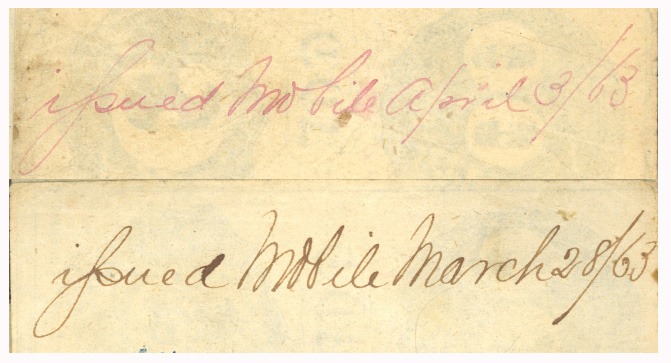 issued Mobile April 3/63
issued Mobile March 28/63